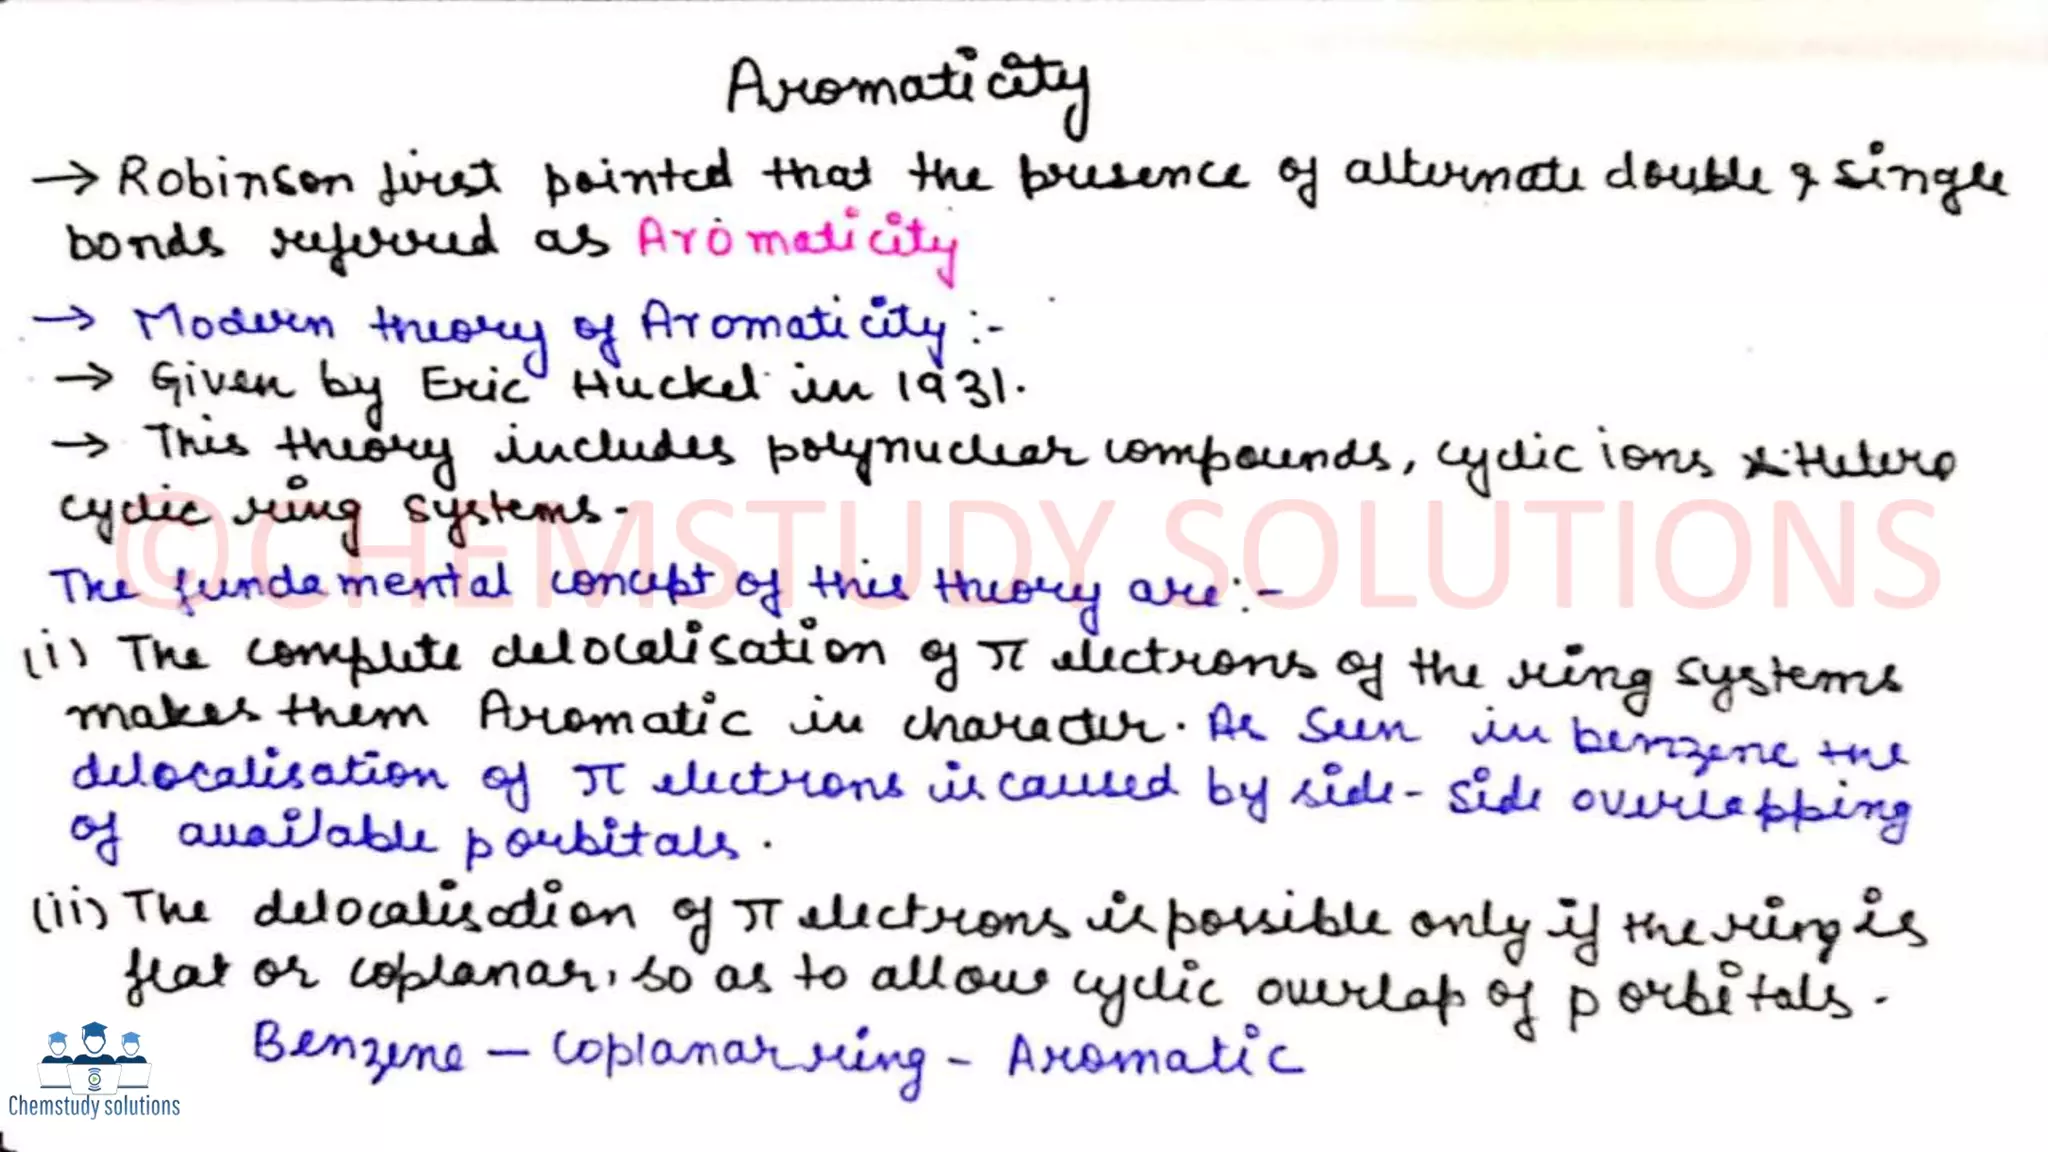 Aromaticity
→ Robinson first pointed that the presence of alternate double & single
bonds referred as Aromaticity
→ Modern theory of Aromaticity :-
→ Given by Eric Huckel in 1931.
→ This theory includes polynuclear compounds, cyclic ions & Hetero
cyclic ring systems.
©CHEMSTUDY SOLUTIONS
The fundamental concept of this theory are :-
(i) The complete delocalisation of π electrons of the ring systems
makes them Aromatic in character. As seen in benzene the
delocalisation of π electrons is caused by side-side overlapping
of available p orbitals.
(ii) The delocalisation of π electrons is possible only if the ring is
flat or coplanar, so as to allow cyclic overlap of p orbitals.
Benzene - coplanar ring - Aromatic
Chemstudy solutions